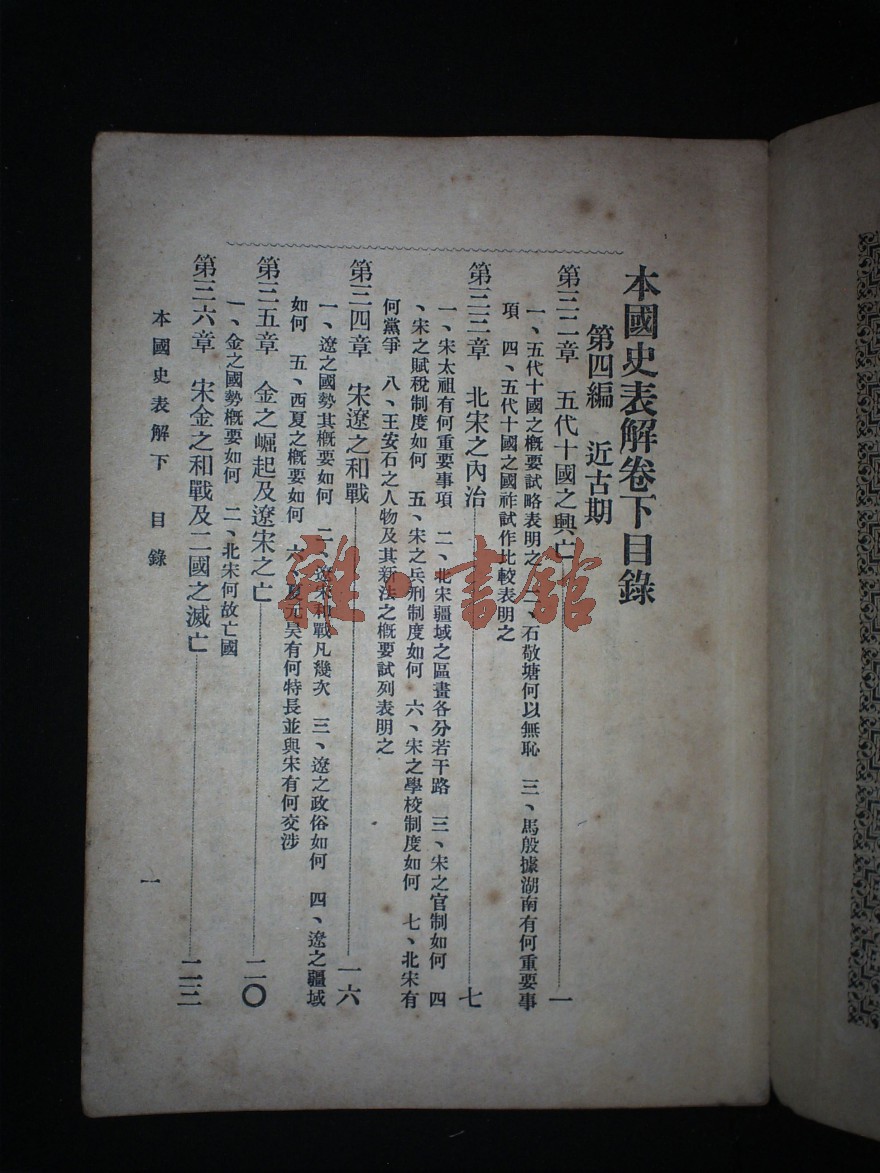 本國史表解卷下目錄
第四編 近古期
第三二章 五代十國之興亡 一
一、五代十國之概要試略表明之 二、石敬塘何以無恥 三、馬殷據湖南有何重要事
項 四、五代十國之國祚試作比較表明之
第三三章 北宋之內治 七
一、宋太祖有何重要事項 二、北宋疆域之區畫各分若干路 三、宋之官制如何 四
、宋之賦稅制度如何 五、宋之兵刑制度如何 六、宋之學校制度如何 七、北宋有
何黨爭 八、王安石之人物及其新法之概要試列表明之
第三四章 宋遼之和戰 一六
一、遼之國勢其概要如何 二、遼宋和戰凡幾次 三、遼之政俗如何 四、遼之疆域
如何 五、西夏之概要如何 六、夏元昊有何特長並與宋有何交涉
第三五章 金之崛起及遼宋之亡 二〇
一、金之國勢概要如何 二、北宋何故亡國
第三六章 宋金之和戰及二國之滅亡 二三
本國史表解下 目錄
一
雜·書館